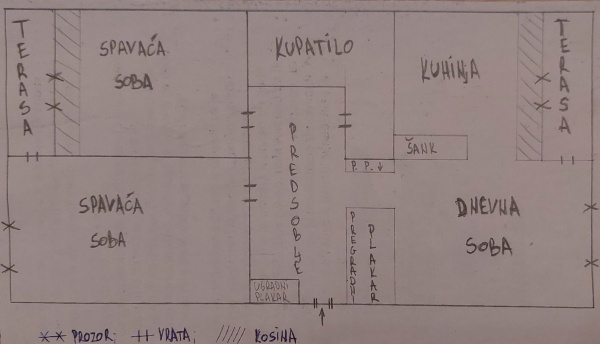 TERASA
SPAVAĆA
SOBA
KUPATILO
KUHINJA
TERASA
ŠANK
PREDSOBLJE
P.P.↓
SPAVAĆA
SOBA
DNEVNA
SOBA
PREGRADNI
PLAKAR
UGRADNI
PLAKAR
PROZOR; VRATA; KOSINA